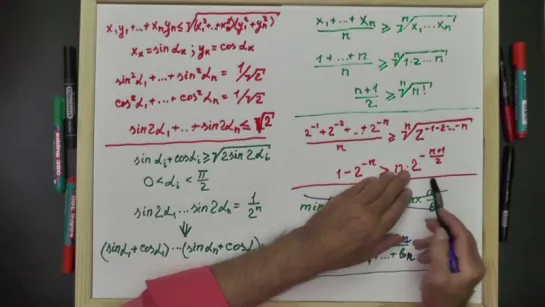 x₁y₁+..+xₙyₙ≤√(x₁²+..+xₙ²)(y₁²+..+yₙ²)
xₖ=sinαₖ ; yₖ=cosαₖ
sin²α₁+...+sin²αₙ=1/√2
cos²α₁+...+cos²αₙ=1/√2
sin2α₁+...+sin2αₙ≤√2
sinαᵢ+cosαᵢ≥√2sin2αᵢ
0<αᵢ<π/2
sin2α₁...sin2αₙ=1/2ⁿ
⇓
(sinα₁+cosα₁)...(sinαₙ+cosα
(x₁+...+xₙ)/n≥ⁿ√x₁...xₙ
(1+...+n)/n≥ⁿ√1·2...n
(n+1)/2≥ⁿ√n!
(2⁻¹+2⁻²+...+2⁻ⁿ)/n≥ⁿ√2⁻¹⁻²⁻···⁻ⁿ
1-2⁻ⁿ≥n·2^(-(n+1)/2)
min